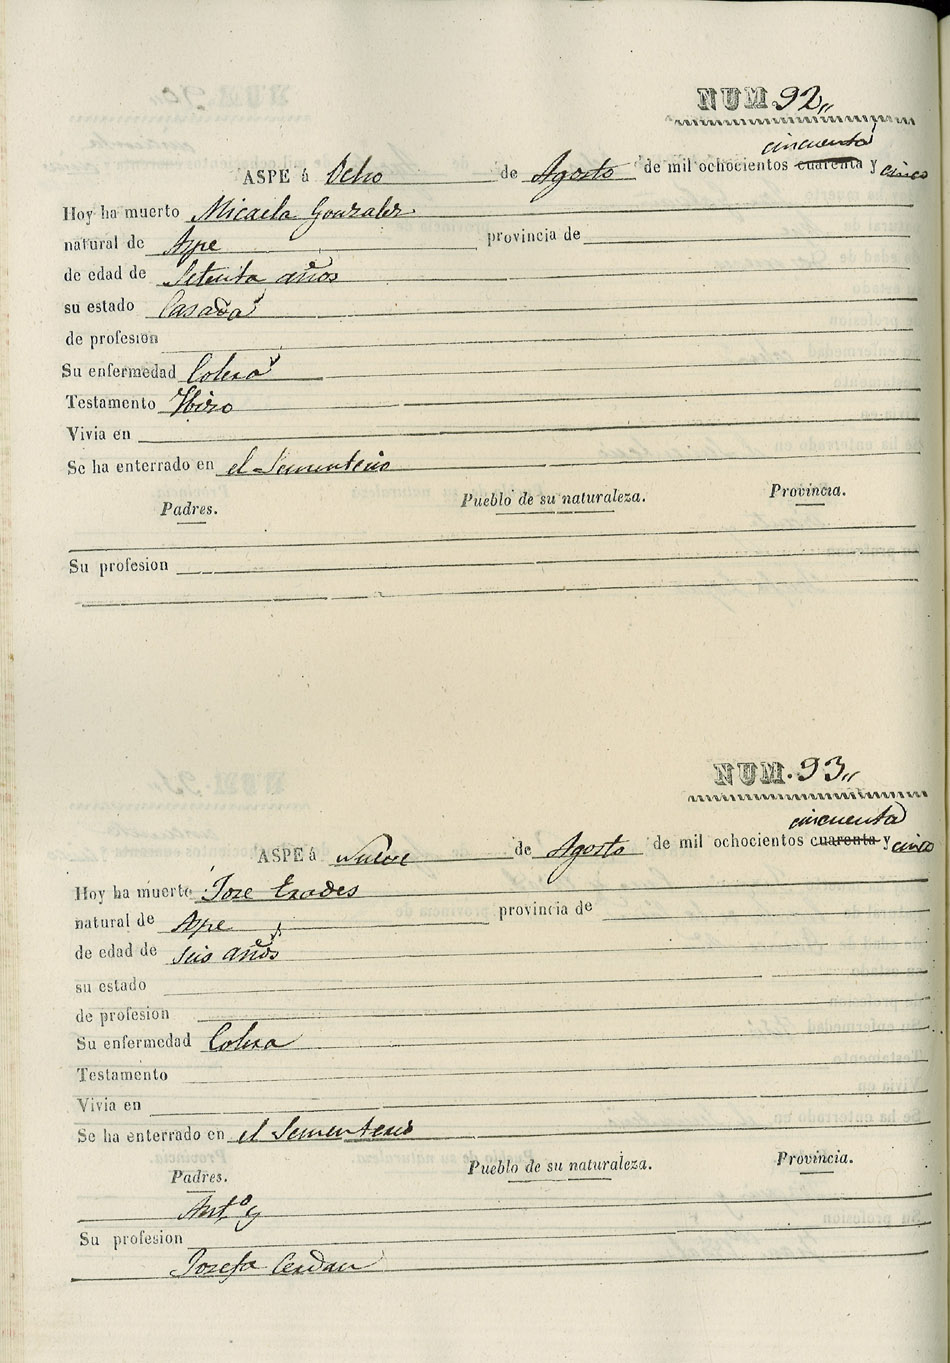 NUM 92,,
cincuenta
ASPE á Ocho de Agosto de mil ochocientos cuarenta y cinco
Hoy ha muerto Micaela Gonzalez
natural de Azpe provincia de
de edad de Setenta años
su estado Casada
de profesion
Su enfermedad Colera
Testamento Hizo
Vivia en
Se ha enterrado en el Sementerio
Padres. Pueblo de su naturaleza. Provincia.
Su profesion
NUM. 93,,
cincuenta
ASPE á Nueve de Agosto de mil ochocientos cuarenta y cinco
Hoy ha muerto Joze Erades
natural de Azpe provincia de
de edad de seis años
su estado
de profesion
Su enfermedad Colera
Testamento
Vivia en
Se ha enterrado en el Sementerio
Padres. Pueblo de su naturaleza. Provincia.
Ant.º y
Su profesion
Jozefa Cerdan